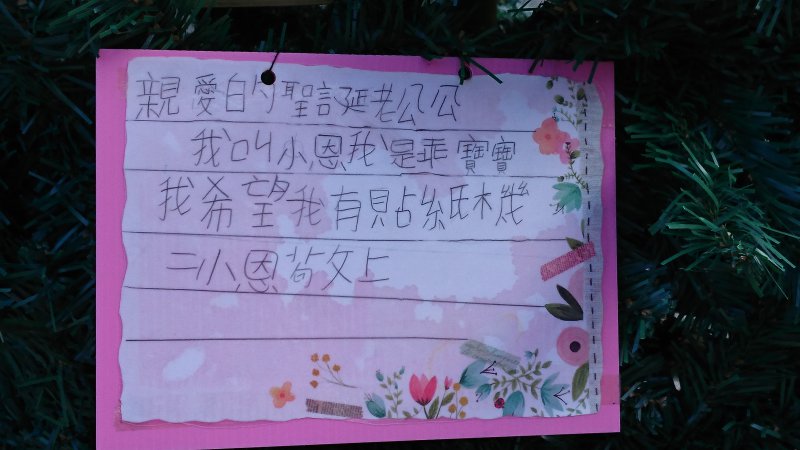 親愛的聖誕老公公
我叫小恩我是乖寶寶
我希望我有貼紙机機
小恩敬上